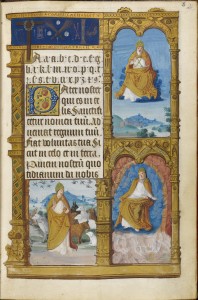 A a b c d e f g
h i k l m n o p q r
Pater noster
qui es in ce
lis Sanctifi
cetur nomen tuū. Ad
ueniat regnum tuū.
Fiat voluntas tua Si
cut in celo et in terra.
Panem nostrū quo
tidianum da nobis